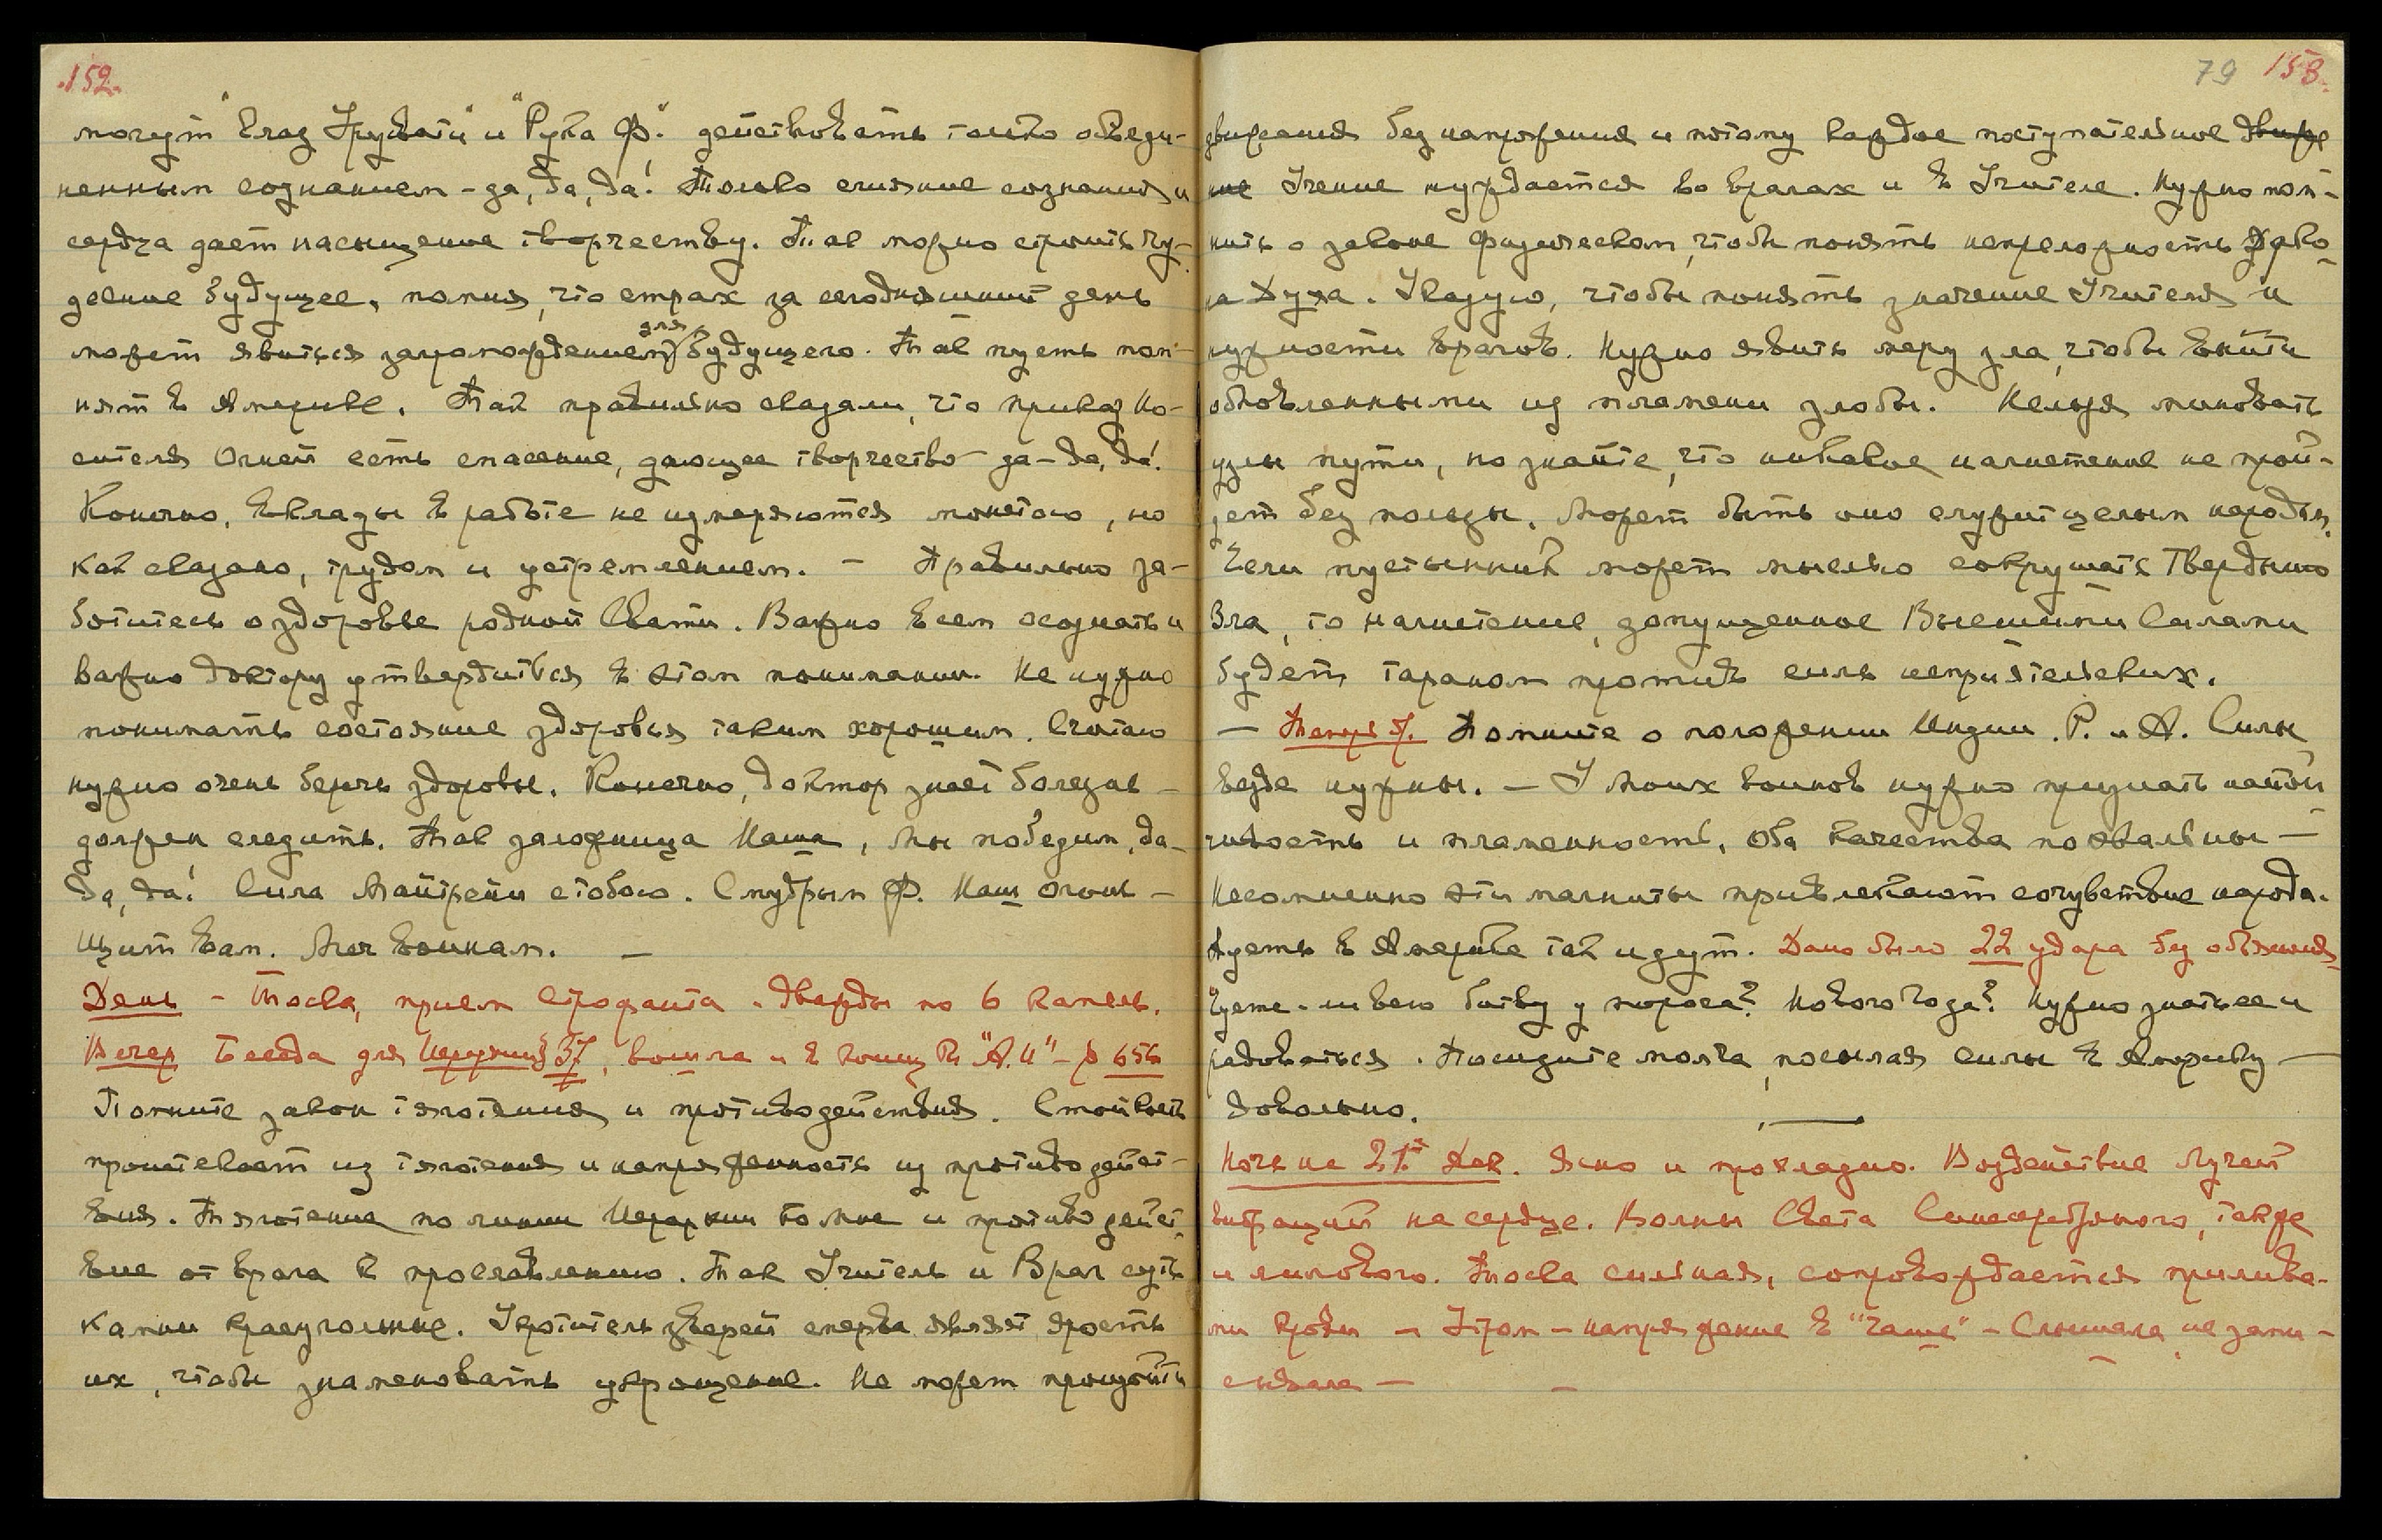 152.
могут "Глаз Урувати" и "Рука Ф." действовать только объеди-
ненным сознанием – да, да, да! Только слияние сознания и
сердца дает насыщение творчеству. Так можно строить чу-
десное будущее, помня, что страх за сегодняшний день
может явиться загромождением для будущего. Так пусть пом-
нят в Америке. Так правильно сказали, что приказ Но-
сителя Огней есть спасение, дающее творчество да – да, да!
Конечно, вклады в работе не измеряются монетою, но
как сказано, трудом и устремлением. – Правильно за-
ботитесь о здоровье родной Свати. Важно всем осознать и
важно доктору утвердиться в этом понимании. Не нужно
понимать состояние здоровья таким хорошим. Считаю
нужно очень беречь здоровье. Конечно, доктор знает болезнь –
должен следить. Так заложница Наша, мы победим, да –
да, да! Сила Майтрейи с тобою. С мудрым Ф. Наш огонь –
Щит вам. Меч воинам. –
День – Тоска, прием строфанта. Дважды по 6 капель.
Вечер Беседа для Иерархии § 37, вошла и в конец кн "А.И" – § 656
Помните закон тяготения и противодействия. Стойкость
проистекает из тяготения и напряженность из противодейст-
вия. Тяготение по линии Иерархии ко мне и противодейст-
вие от врага к прославлению. Так Учитель и Враг суть
камни краеугольные. Укротитель зверей сперва являет ярость
их, чтобы знаменовать укрощение. Не может произойти
79 153.
движения без напряжения и потому каждое поступательное движе
ние Учение нуждается во врагах и в Учителе. Нужно пом-
нить о законе физическом, чтобы понять непреложность Зако-
на Духа. Указую, чтобы понять значение Учителя и
нужности врагов. Нужно явить меру зла, чтобы выйти
обновленными из пламени злобы. Нельзя миновать
узлы пути, но знайте, что никакое нагнетение не прой-
дет без пользы. Может быть оно служит целым народам.
Если пустынник может мыслью сокрушать Твердыню
Зла, то нагнетение, допущенное Высшими Силами
будет тараном против силы неприятельских.
– Теперь Помните о положении Индии. Р. и А. Силы
везде нужны. – У Моих воинов нужно признать настой-
чивость и пламенность, оба качества похвальны –
Несомненно эти магниты привлекают сочувствие народа.
Пусть в Америке так идут. Дано было 22 удара без объяснения
Чуете-ли всю битву у порога? Нового Года? Нужно знать ее и
радоваться. Посидите молча, посылая силы в Америку –
Довольно.
Ночь на 21ое Дек. Ясно и прохладно. Воздействие Лучей
вибраций на сердце. Волны Света Синесеребряного, также
и лилового. Тоска сильная, сопровождается прилива-
ми крови – Утром – напряжение в "Чаше" – Слышала не запи-
сывала –